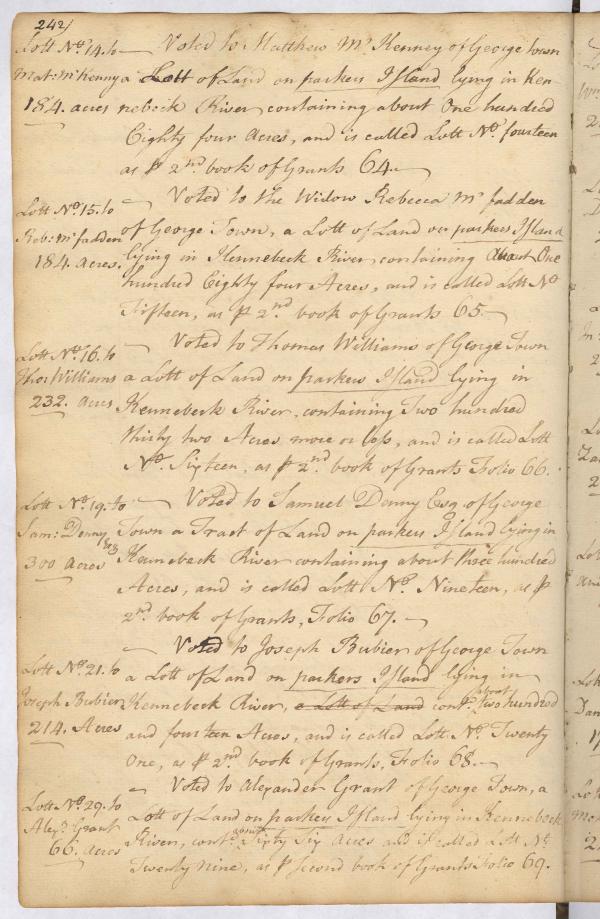 242)
Lott No. 14. to
Mat: McKenny
184. acres
— Voted to Matthew Mc Kenney of George town
a Lott of Land on parkers Island lying in Ken-
nebeck River, containing about One hundred
Eighty four Acres, and is called Lott No. fourteen
as P 2nd book of Grants 64.—
Lott No. 15. to
Reb: Mc fadden
184. acres.
— Voted to the Widow Rebecca Mc fadden
of George Town, a Lott of Land on parkers Island
lying in Kennebeck River, containing about One
hundred Eighty four Acres, and is called Lott No
Fifteen, as P 2nd book of Grants 65.—
Lott No. 16. to
Tho: Williams
232. acres
— Voted to Thomas Williams of George Town
a Lott of Land on parkers Island lying in
Kennebeck River, containing Two hundred
thirty two Acres, more or less, and is called Lott
No. Sixteen, as P 2nd book of Grants Folio 66.
Lott No. 19. to
Sam: Denny Esq
300 acres
— Voted to Samuel Denny Esq of George
Town a Tract of Land on parkers Island lying in
Kennebeck River containing about three hundred
Acres, and is called Lott No. Nineteen, as P
2nd book of Grants, Folio 67.—
Lott No. 21. to
Joseph Bubier
214. Acres
— Voted to Joseph Bubier of George Town
a Lott of Land on parkers Island lying in
Kennebeck River, a Lott of Land contg. about two hundred
and fourteen Acres, and is called Lott No. Twenty
One, as P 2nd book of Grants, Folio 68.—
Lott No. 29. to
Alexr. Grant
66. acres
— Voted to Alexander Grant of George Town, a
Lott of Land on parkers Island lying in Kennebeck
River, contg. about Sixty Six Acres and is called Lott No.
Twenty nine, as P Second book of Grants Folio 69.